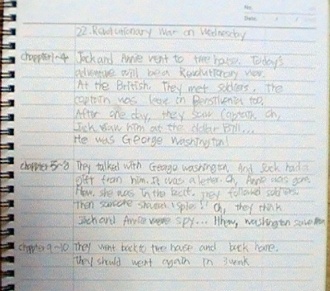 22. Revolutionary War on Wednesday
chapter 1-4 Jack and Annie went to tree house. Today's
adventure will be a Revolutionary war.
At the British. They met soldiers, the
captain was leave in too.
After one day, they saw captain, oh,
Jack saw him at the dollar bill...
He was George Washington!
chapter 5-8 They talked with George Washington. And Jack had a
gift from him. It was a letter. Oh, Annie was gone.
Now she was in the boat. They followed soldiers.
Then someone shouted "spies!" Oh, they think
Jack and Annie were spy... Washington
chapter 9-10 They went back to tree house and back home.
They should went again in 3 week